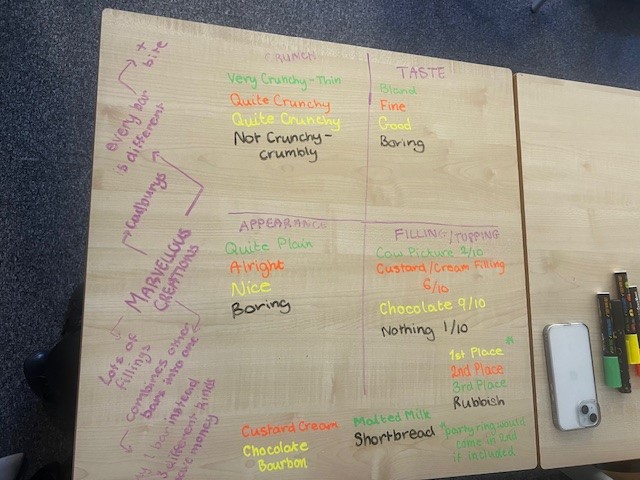 CRUNCH
Very Crunchy-Thin
Quite Crunchy
Quite Crunchy
Not Crunchy-
Crumbly
TASTE
Bland
Fine
Good
Boring
APPEARANCE
Quite Plain
Alright
Nice
Boring
FILLING/TOPPING
Cow Picture 2/10
Custard/Cream Filling
6/10
Chocolate 9/10
Nothing 1/10
1st Place *
2nd Place
3rd Place
Rubbish
Custard Cream
Chocolate
Bourbon
Malted Milk
Shortbread
*party ring would
come in 2nd
if included
MARVELLOUS
CREATIONS
Cadburys
every bar
is different
+
bite
Lots of
fillings
combines other
bars into one
1 bar instead
different kinds
money